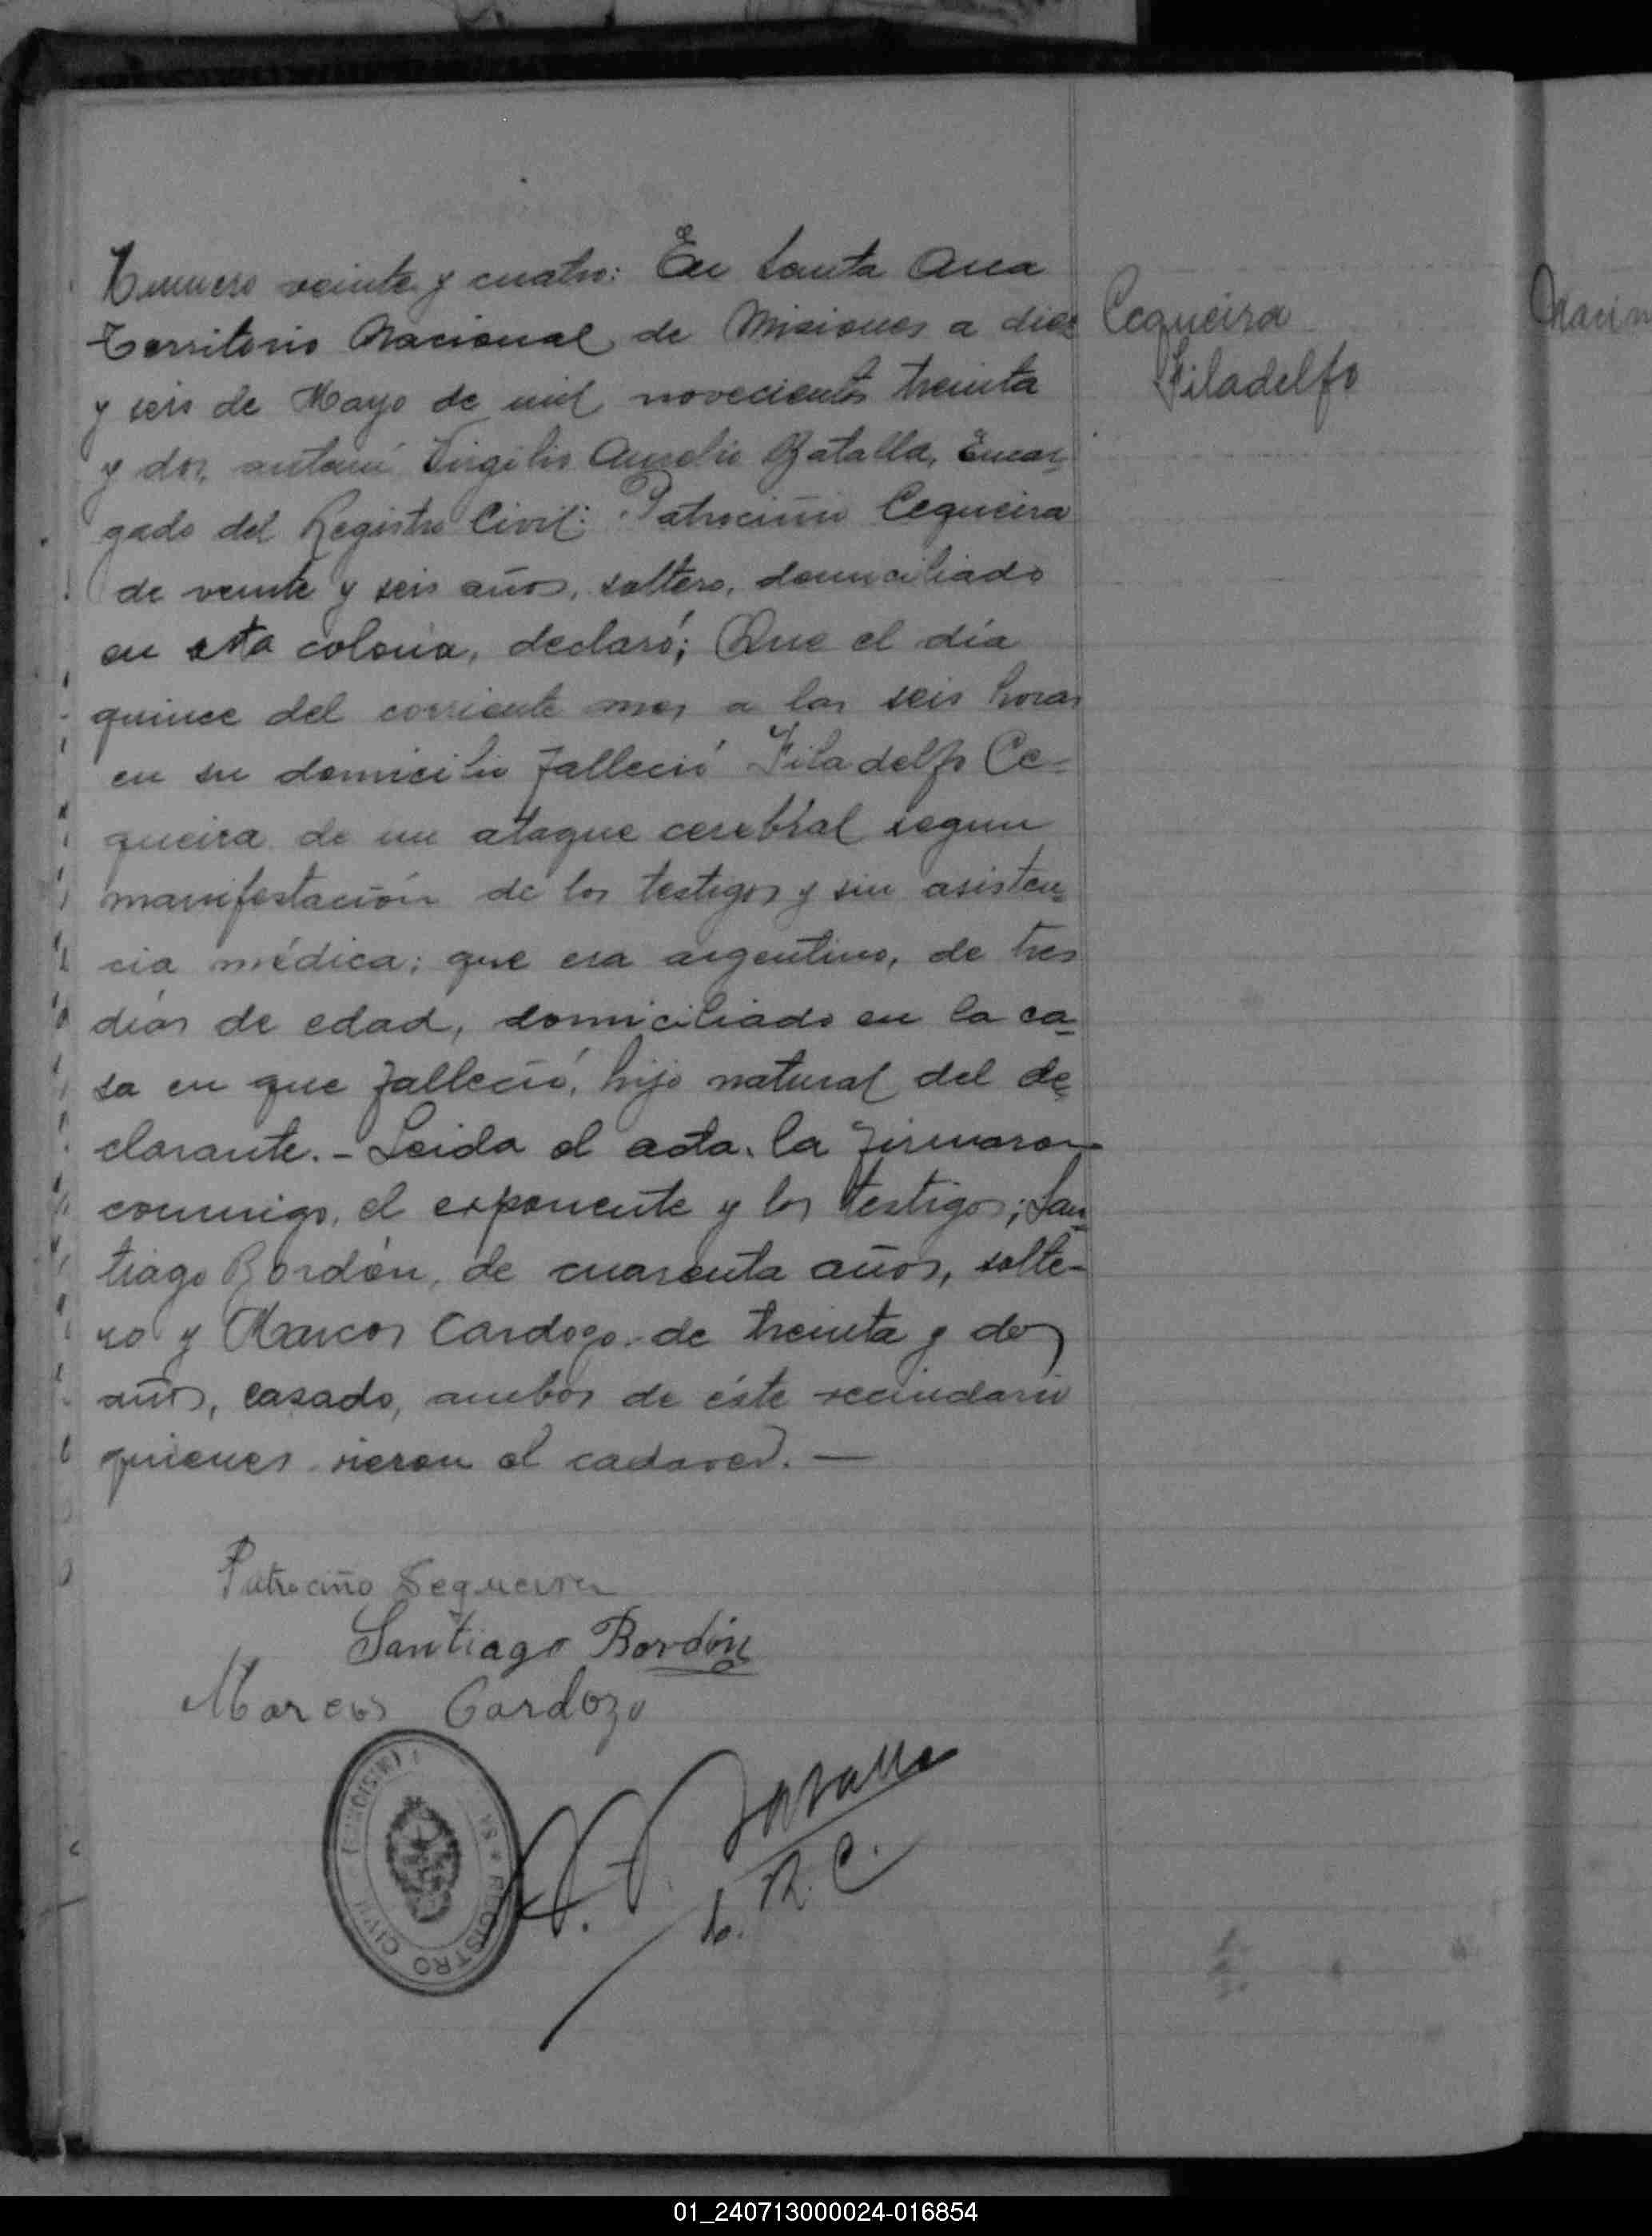 Numero veinte y cuatro: En Santa Ana
Territorio Nacional de Misiones a diez
y seis de Mayo de mil novecientos treinta
y dos, antemí Virgilio Aurelio Batalla, Encar-
gado del Registro Civil: Patrocinio Cequeira
de veinte y seis años, soltero, domiciliado
en esta colonia, declaró; Que el día
quince del corriente mes a las seis horas
en su domicilio falleció Filadelfo Ce-
queira de un ataque cerebral segun
manifestación de los testigos y sin asisten-
cia médica; que era argentino, de tres
dias de edad, domiciliado en la ca-
sa en que falleció, hijo natural del de-
clarante.- Leida el acta, la firmaron
conmigo, el exponente y los testigos; San-
tiago Bordón, de cuarenta años, solte-
ro y Marcos Cardozo de treinta y dos
años, casado, ambos de éste vecindario
quienes vieron el cadaver. —
Cequeira
Filadelfo
Patrociño Sequeira
Santiago Bordón
Marcos Cardozo
Batalla
R. C.
REGISTRO CIVIL (MISIONES)
01_240713000024-016854